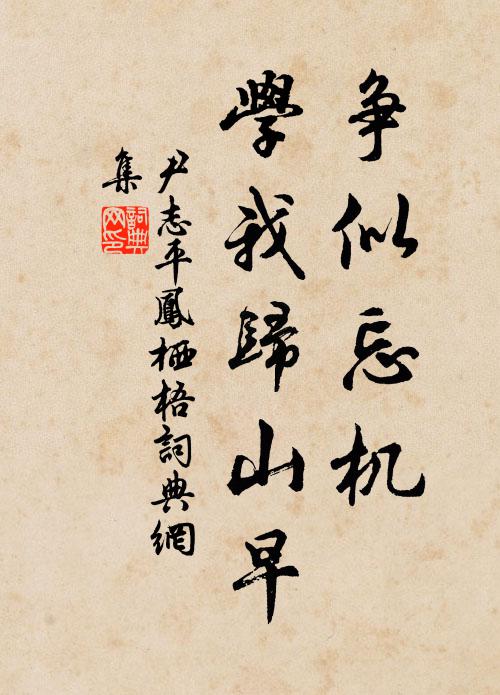 争似忘机
學我歸山早
尹志平鳳栖梧詞典網
集
詞典网印